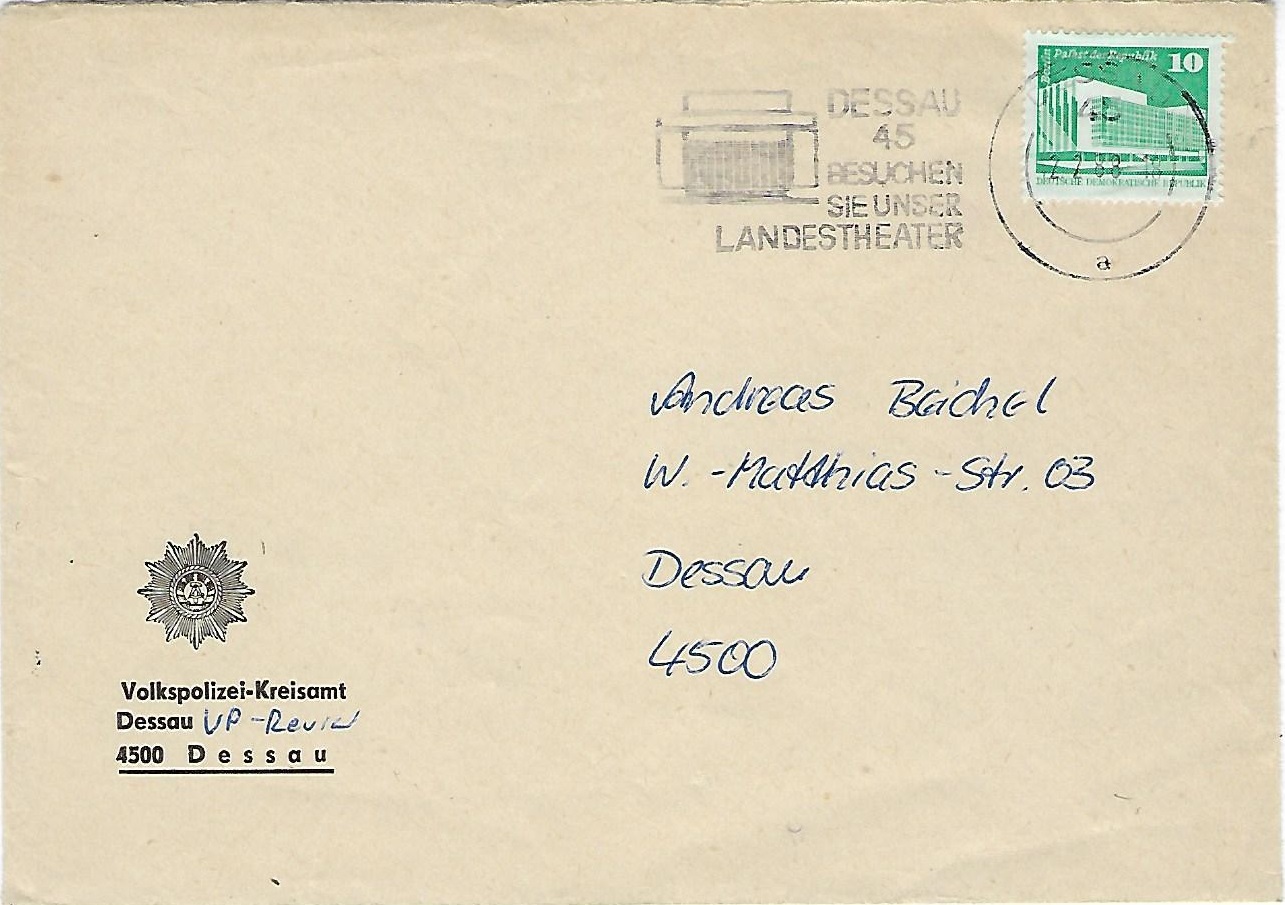 Berlin
Palast der Republik 10
DEUTSCHE DEMOKRATISCHE REPUBLIK
DESSAU
45
BESUCHEN
SIE UNSER
LANDESTHEATER
45
2.2.88-18
a
Andreas Bäichel
W.-Matthias-Str. 03
Dessau
4500
Volkspolizei-Kreisamt
Dessau VP-Revier
4500 Dessau